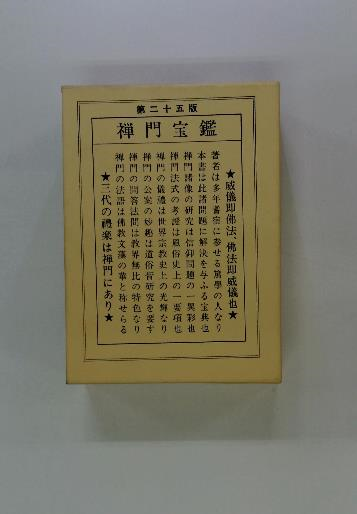 第二十五版
禅門宝鑑
★威儀即佛法、佛法即威儀也★
著者は多年蒼窓に参せる篤學の人なり
本書は此諸問題に解決を与ふる宝典也
禅門諸像の研究は信仰問題の一異彩也
禅門法式の考證は風俗史上の一要項也
禅門の儀禮は世界宗教史上の光輝なり
禅門の公案の妙趣は道俗斉研究を要す
禅門の問答法問は教界無比の特色なり
禅門の法語は佛教文藻の華と称せらる
★三代の禮楽は禅門にあり★